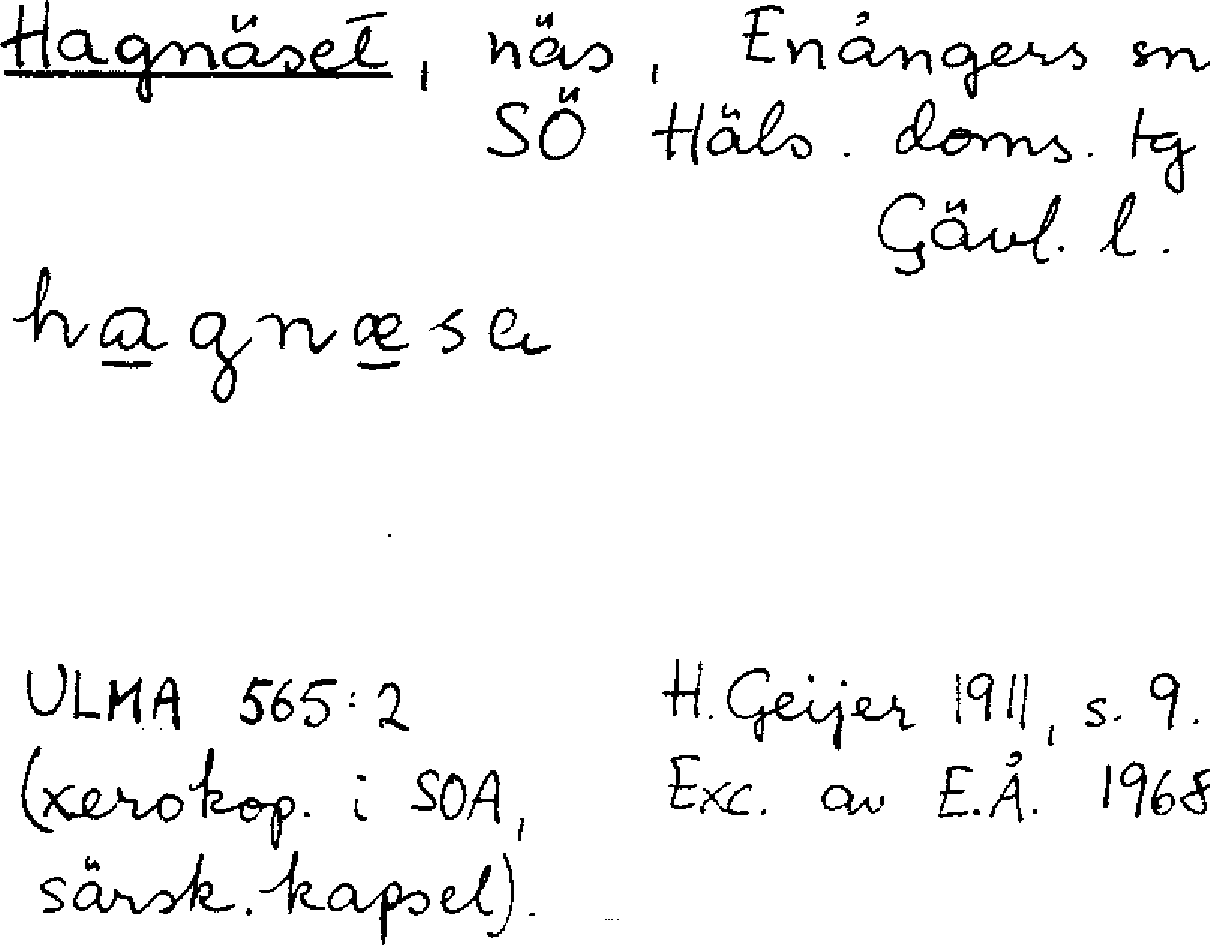 Hagnäset, näs, Enångers sn
SÖ Häls. doms. tg
Gävl. l.
hagnæsa
ULMA 565:2
(xerokop. i SOA,
särsk. kapsel).
H. Geijer 1911, s. 9.
Exc. av E.Å. 1968